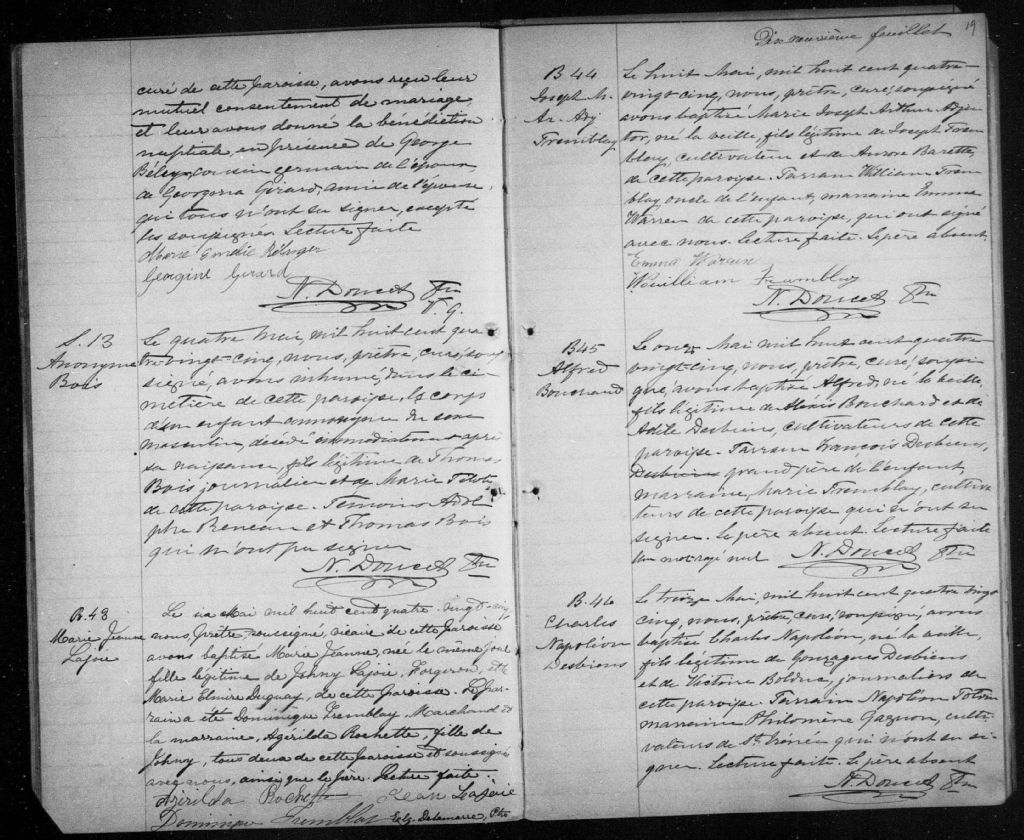 curé de cette paroisse, avons reçu leur
mutuel consentement de mariage
et leur avons donné la bénédiction
nuptiale, en présence de George
cousin germain de l'époux,
de Georgina Girard, amie de l'épouse,
qui tous n'ont su signer, excepté
les soussignés. Lecture faite
Emélie Bélanger
Georgine Girard
N. Doucet Ptre
V. G.
S. 13
Anonyme
Bois
Le quatre Mai, mil huit cent qua
tre-vingt-cinq, nous, prêtre, curé, sous
signé, avons inhumé, dans le ci-
metière de cette paroisse, le corps
d'un enfant annonyme du sexe
masculin, décédé immédiatement après
sa naissance, fils légitime de Thomas
Bois journalier et de Marie
de cette paroisse. Témoins Adol
phe Reneau et Thomas Bois
qui n'ont pu signer
N. Doucet Ptre
B. 43
Marie Jeanne
Lajoie
Le Mai mil huit cent quatre-vingt-cinq
nous Prêtre soussigné, vicaire de cette Paroisse
avons baptisé Marie Jeanne, née le même jour
fille légitime de Johny Lajoie, Forgeron, et de
Marie Elmire Duguay, de cette Paroisse. Le par-
rain a été Dominique Tremblay, Marchand et
la marraine, Azérilda Rochette, fille de
Johny, tous deux de cette Paroisse et soussignés
avec nous, ainsi que le père. Lecture faite.
Azérilda Rochette Jean Lajoie
Dominique Tremblay Elz. Delamarre, Ptre
Dix neuvième feuillet 19
B 44
Joseph M.
Ar. Adj.
Tremblay
Le huit Mai, mil huit cent quatre-
vingt-cinq, nous, prêtre, curé, soussigné
avons baptisé Marie Joseph Arthur Adju
tor, né la veille, fils légitime de Joseph Trem
blay, cultivateur et de Aurore Barette,
de cette paroisse. Parrain William Trem
blay, oncle de l'enfant, marraine Emma
Warren de cette paroisse, qui ont signé
avec nous. Lecture faite. Le père absent.
Emma Waren
Wouilliam Trambley
N. Doucet Ptre
B 45
Alfred
Bouchard
Le onze Mai mil huit cent quatre
vingt-cinq, nous, prêtre, curé, soussi
gné, avons baptisé Alfred, né la veille,
fils légitime de Alexis Bouchard et de
Adèle Desbiens, cultivateurs de cette
paroisse. Parrain François Desbiens,
Desbiens grand père de l'enfant,
marraine, Marie Tremblay, cultiva
teurs de cette paroisse qui n'ont su
signer. Le père absent. Lecture faite
Un mot rayé nul N. Doucet Ptre
B. 46
Charles
Napoléon
Desbiens
Le treize Mai mil huit cent quatre vingt
cinq, nous, prêtre, curé, soussigné, avons
baptisé Charles Napoléon, né la veille,
fils légitime de Gonzagues Desbiens
et de Victoire Bolduc, journaliers de
cette paroisse. Parrain Napoléon
marraine Philomène Gagnon, culti-
vateurs de St. Irénée qui n'ont su si-
gner. Lecture faite. Le père absent
N. Doucet Ptre